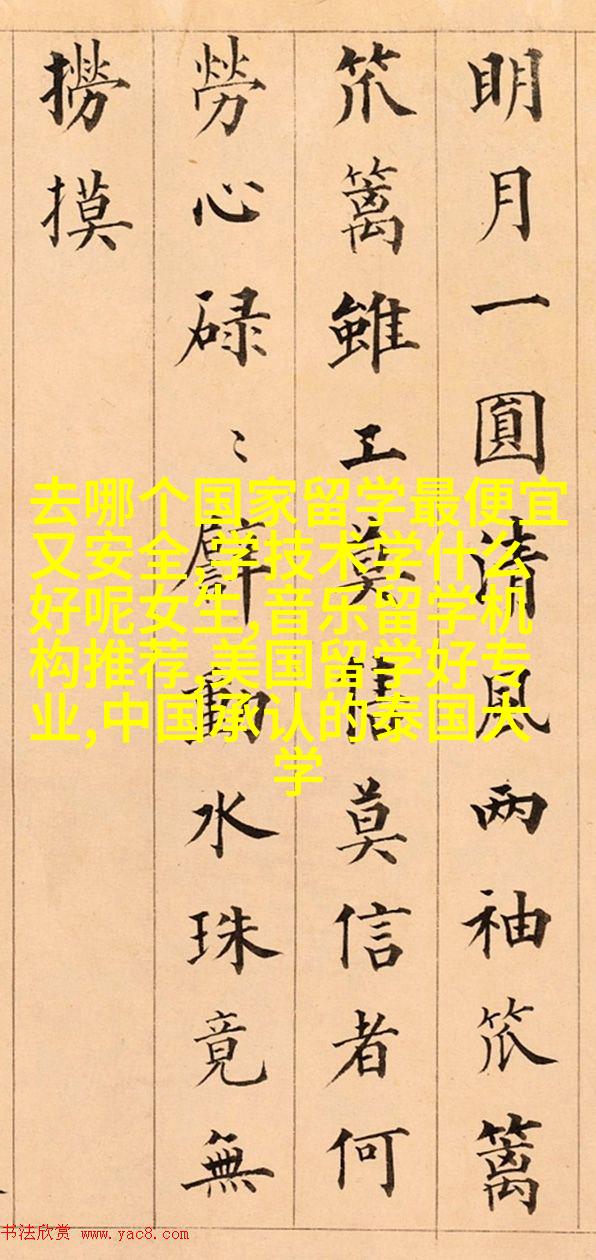 明月一圓清風两袖笊篱
笊篱雖工莫莫信者何
勞心碌〻動水珠竟無
撈摸
去哪个国家留学最便宜
又安全,学技术学什么
好呢女生,音乐留学机
构推荐,美国留学好专
业,中国承认的泰国大
学
书法欣赏 www.yac8.com